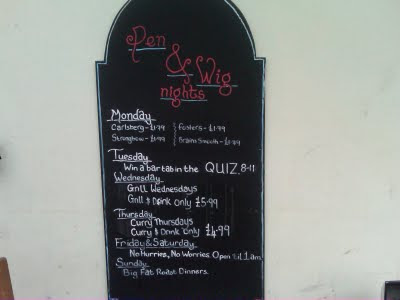 Pen
& Wig
nights
Monday
Carlsberg - £1.99 Fosters - £1.99
Strongbow - £1.99 Brains Smooth - £1.99
Tuesday
Win a bar tab in the QUIZ 8-11
Wednesday
Grill Wednesdays
Grill & Drink only £5.99
Thursday
Curry Thursdays
Curry & Drink only £4.99
Friday & Saturday
No Hurries, No Worries Open 'til 1am
Sunday
Big Fat Roast Dinners